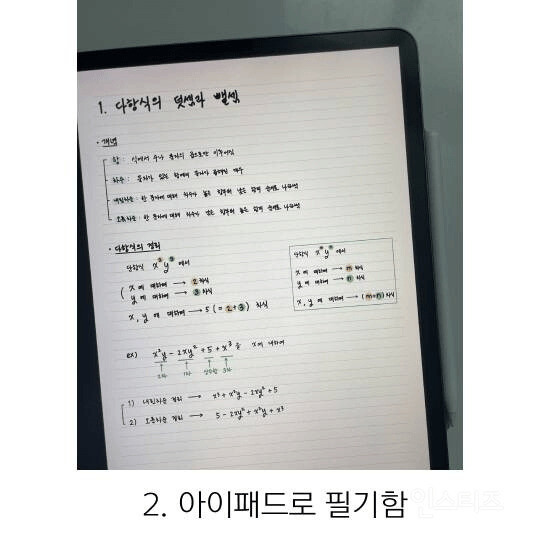 1. 다항식의 덧셈과 뺄셈
· 개념
항 : 식에서 수나 문자의 곱으로만 이루어진
차수 : 문자가 있는 항에서 문자가 곱해진 개수
내림차순 : 한 문자에 대해 차수가 높은 항부터 낮은 항의 순서로 나타냄
오름차순 : 한 문자에 대해 차수가 낮은 항부터 높은 항의 순서로 나타냄
· 다항식의 정리
단항식 x²y³ 에서
x 에 대하여 → 2차식
y 에 대하여 → 3차식
x, y 에 대하여 → 5 (= 2+3) 차식
단항식 xᵐyⁿ 에서
x 에 대하여 → m 차식
y 에 대하여 → n 차식
x, y 에 대하여 → (m+n) 차식
ex) x²y - 2xy² + 5 + x³ 을 x에 대하여
2차 1차 상수항 3차
1) 내림차순 정리 → x³ + x²y - 2xy² + 5
2) 오름차순 정리 → 5 - 2xy² + x²y + x³
2. 아이패드로 필기함
인스티즈